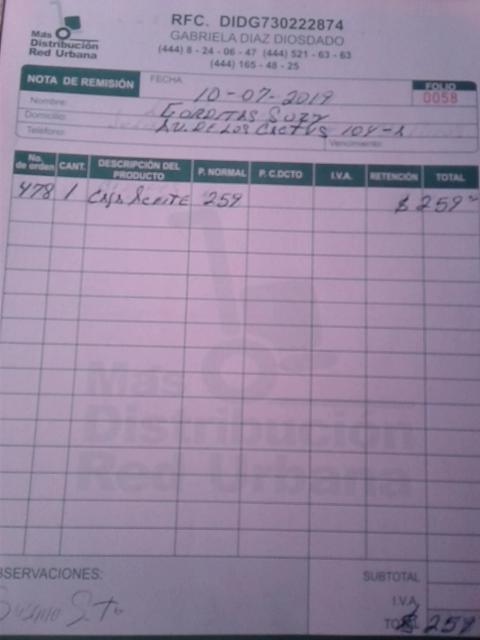 RFC. DIDG730222874
GABRIELA DIAZ DIOSDADO
(444) 8 - 24 - 06 - 47 (444) 521 - 63 - 63
(444) 165 - 48 - 25
Más
Distribución
Red Urbana
NOTA DE REMISIÓN
FECHA
10-07-2019
FOLIO
0058
Nombre:
GORDITAS SUZY
Domicilio:
AV. DE LOS CACTUS 104-A
Teléfono:
Vencimiento:
No. de orden CANT. DESCRIPCIÓN DEL PRODUCTO P. NORMAL P. C.DCTO I.V.A. RETENCIÓN TOTAL
478 1 CAJA ACEITE 259 $ 259
Más
Distribución
Red Urbana
OBSERVACIONES:
SUBTOTAL
I.V.A.
TOTAL $ 259